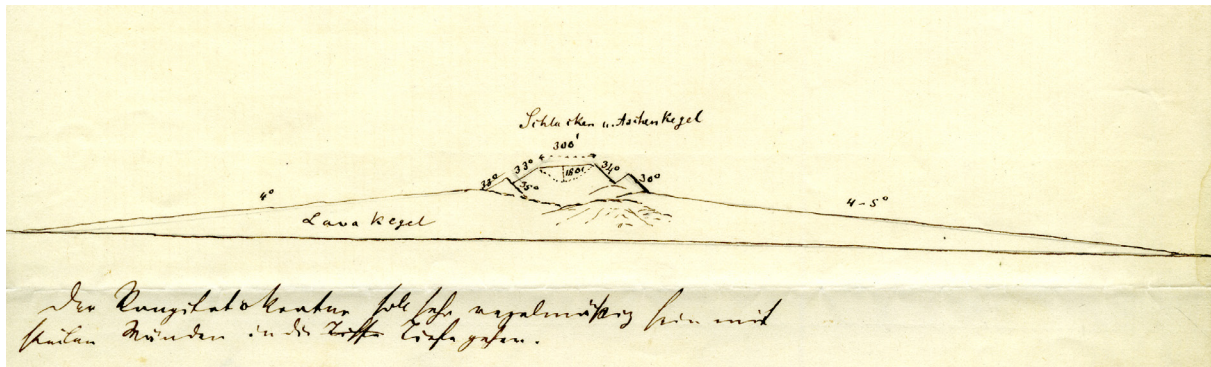 Schlacken u. Aschenkegel
300'
33° 34°
33° 35° 180' 30°
4° 4-5°
Lava Kegel
Der Rangitoto Krater soll sehr regelmäßig sein mit
steilen Wänden in die Tiefe gehen.